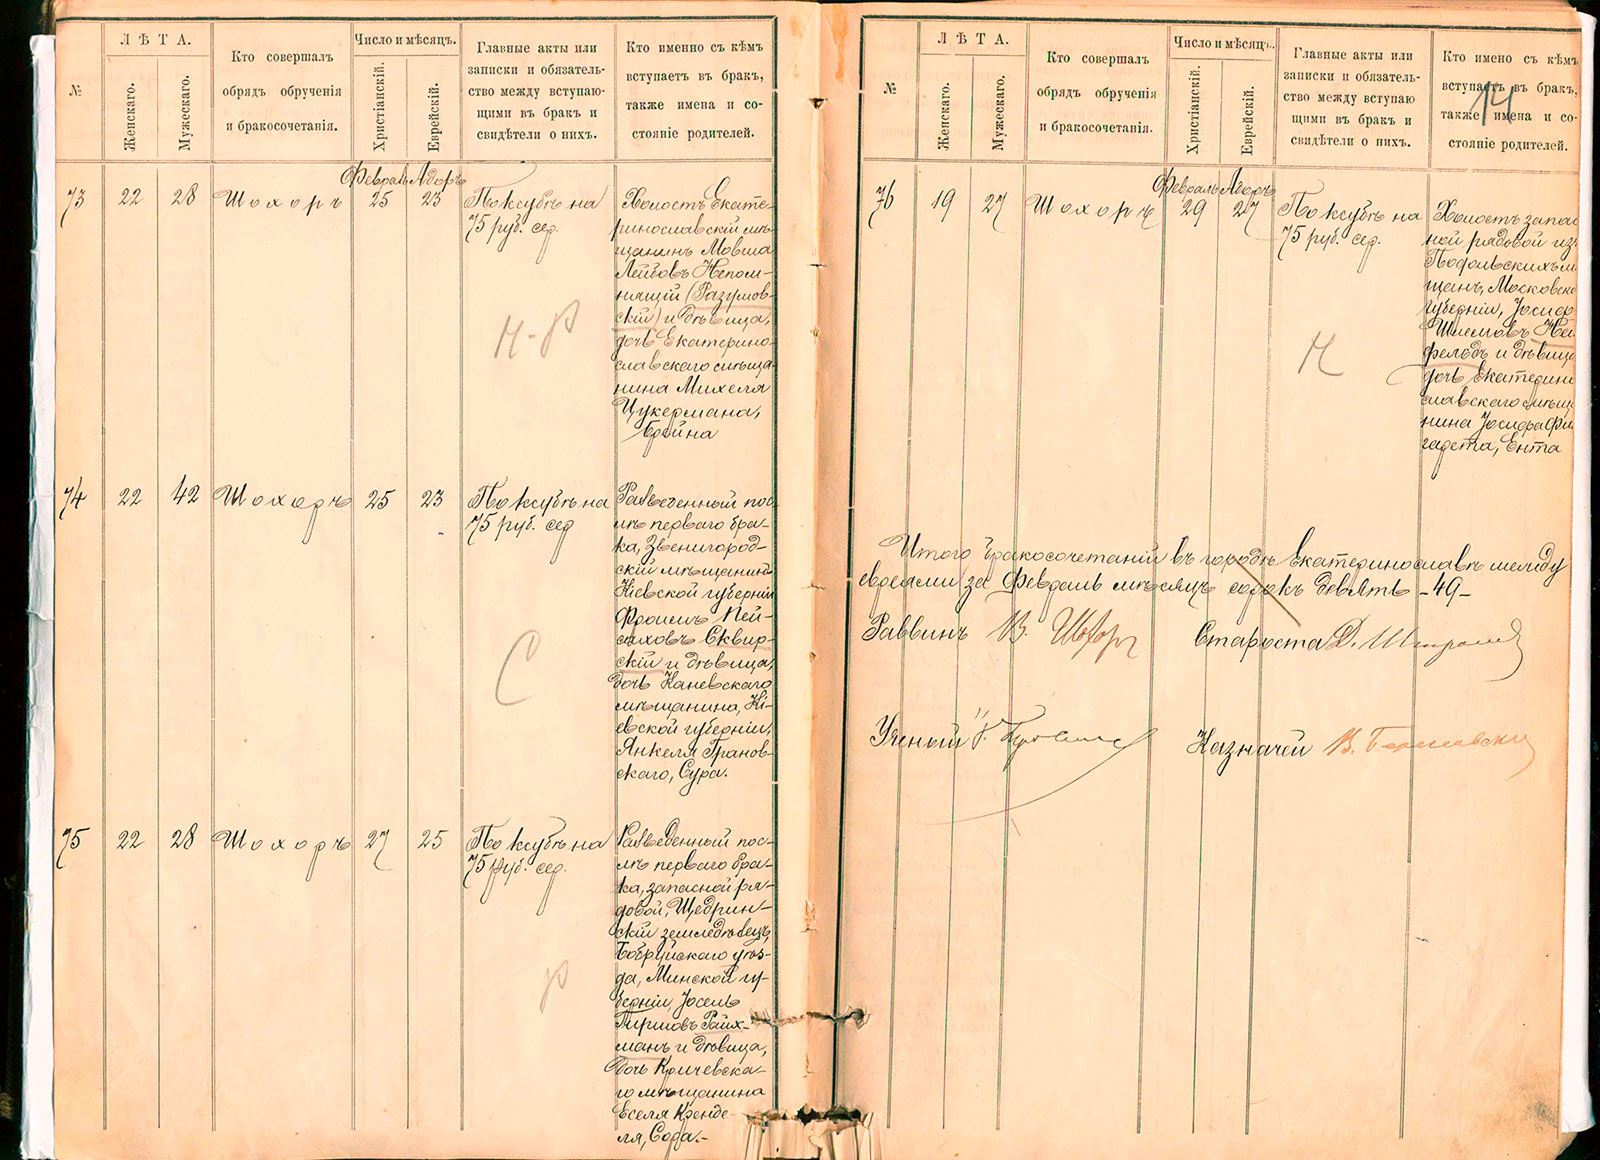 №
ЛѢТА.
Женскаго.
Мужескаго.
Кто совершалъ
обрядъ обрученія
и бракосочетанія.
Число и мѣсяцъ.
Христіанскій.
Еврейскій.
Главные акты или
записки и обязатель-
ство между вступаю-
щими въ бракъ и
свидѣтели о нихъ.
Кто именно съ кѣмъ
вступаетъ въ бракъ,
также имена и со-
стояніе родителей.
Февраль Адоръ
73 22 28 Шохоръ 25 23
По ксубѣ на
75 руб. сер.
Холостъ Екате-
ринославскій мѣ-
щанинъ Мовша
Лейбовъ Непом-
нящій (Разумов-
скій) и дѣвица,
дочь Екатерино-
славскаго мѣща-
нина Михеля
Цукермана,
Брайна
Н-Р
74 22 42 Шохоръ 25 23
По ксубѣ на
75 руб. сер
Разведенный пос-
лѣ перваго бра-
ка, Звенигород-
скій мѣщанинъ
Кіевской губерніи
Фроимъ Пей-
саховъ Сквир-
скій и дѣвица,
дочь Каневскаго
мѣщанина, Кі-
евской губерніи,
Янкеля Гранов-
скаго, Сура.
С
75 22 28 Шохоръ 27 25
По ксубѣ на
75 руб. сер.
Разведенный пос-
лѣ перваго бра-
ка, запасной ря-
довой, Щедрин-
скій земледѣлецъ,
Бобруйскаго уѣз-
да, Минской гу-
берніи, Іосель
Гиршовъ Райх-
манъ и дѣвица,
дочь Кричевска-
го мѣщанина
Еселя Кренде-
ля, Сора.-
Р
14
№
ЛѢТА.
Женскаго.
Мужескаго.
Кто совершалъ
обрядъ обрученія
и бракосочетанія.
Число и мѣсяцъ.
Христіанскій.
Еврейскій.
Главные акты или
записки и обязатель-
ство между вступаю
щими въ бракъ и
свидѣтели о нихъ.
Кто имено съ кѣмъ
вступаетъ въ бракъ,
также имена и со-
стояніе родителей.
Февраль Адоръ
76 19 27 Шохоръ 29 27
По ксубѣ на
75 руб. сер.
Холостъ запас
ной рядовой изъ
Подольскихъ мѣ
щанъ, Московско
губерніи, Іосифъ
Шлемовъ Ней
фельдъ и дѣвица
дочь Екатерино
славскаго мѣща
нина Іосифа
Ента
Н
Итого бракосочетаній въ городѣ Екатеринославѣ между
евреями за Февраль мѣсяцъ сорокъ девять -49-
Раввинъ В. Шохоръ Староста Д.
Ученый Казначей В.